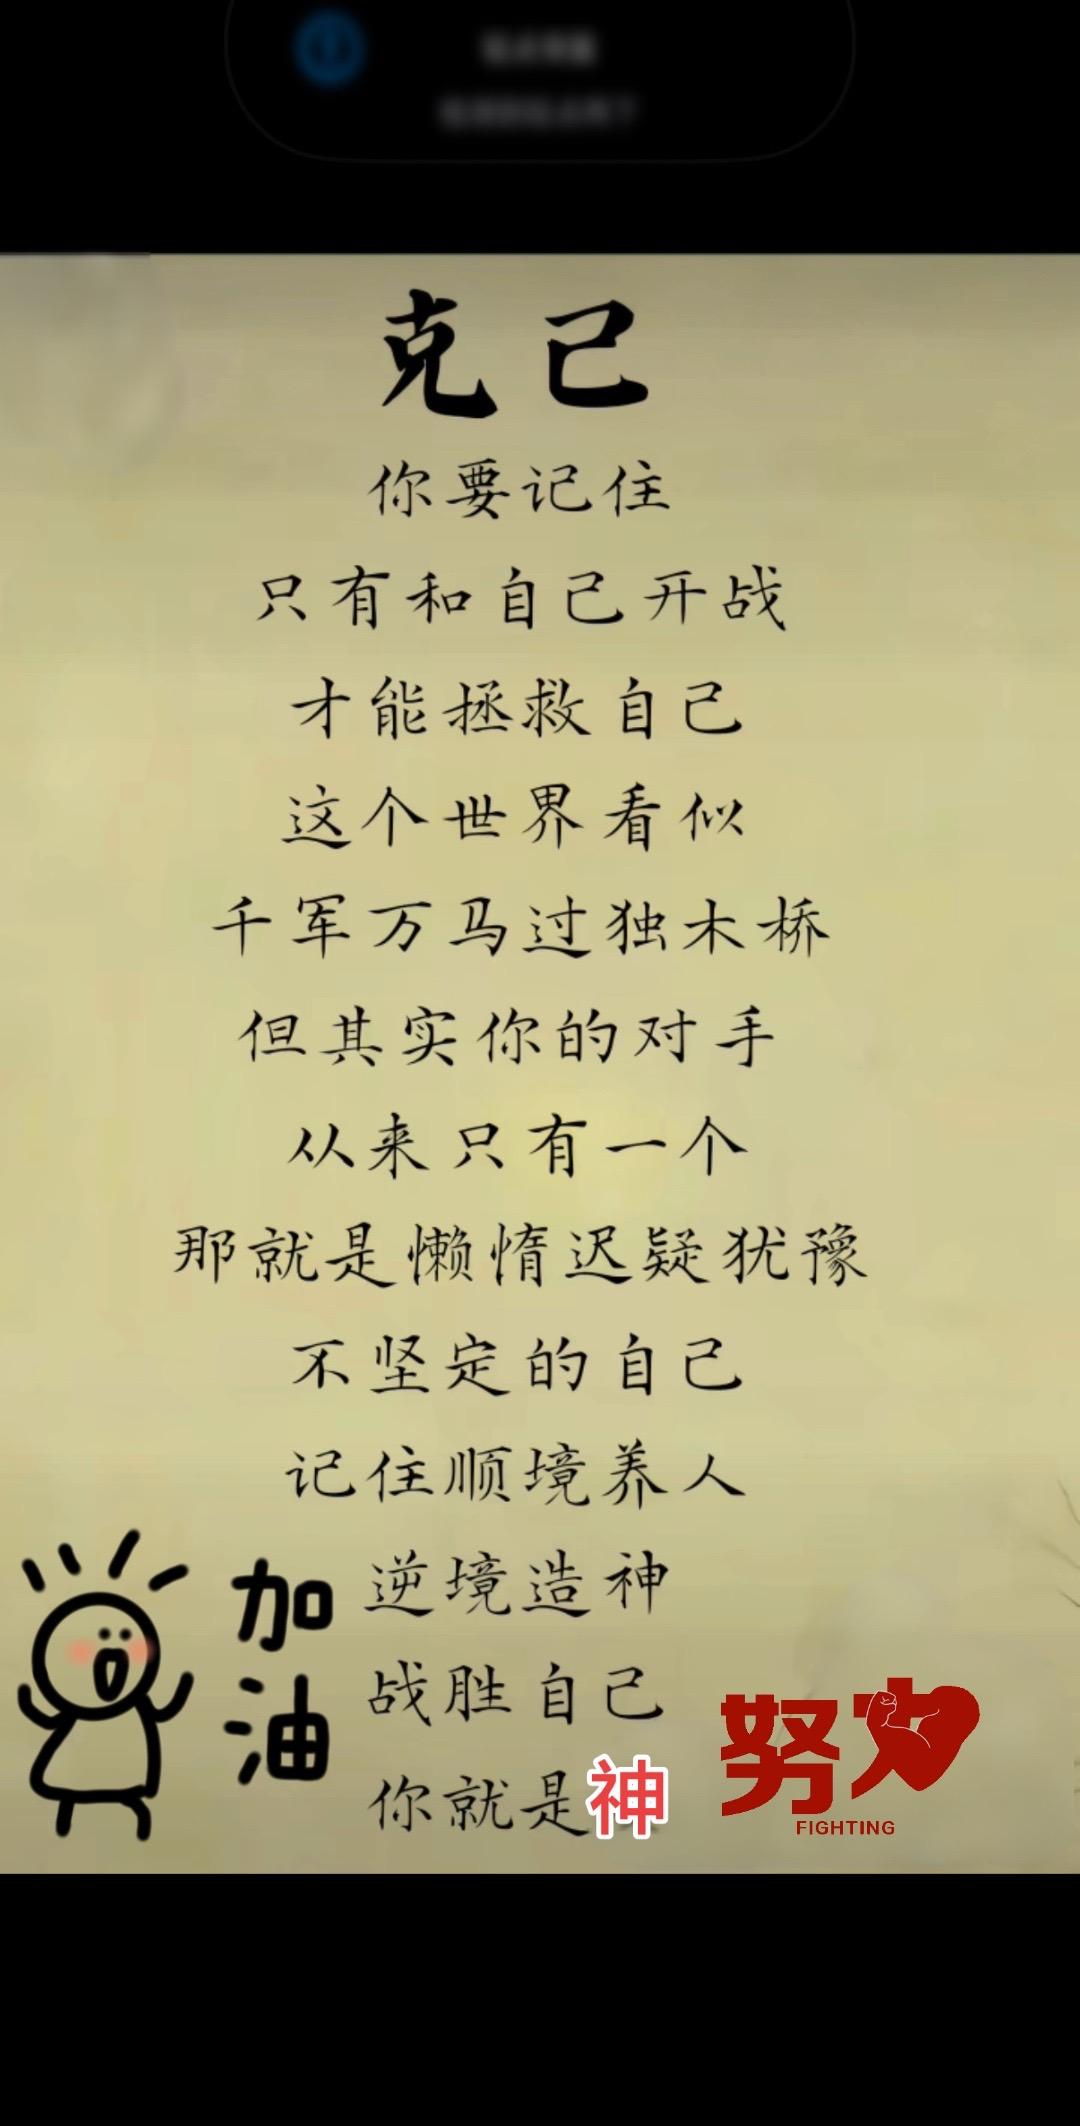 克己
你要记住
只有和自己开战
才能拯救自己
这个世界看似
千军万马过独木桥
但其实你的对手
从来只有一个
那就是懒惰迟疑犹豫
不坚定的自己
记住顺境养人
逆境造神
战胜自己
你就是神
加油
努力
FIGHTING